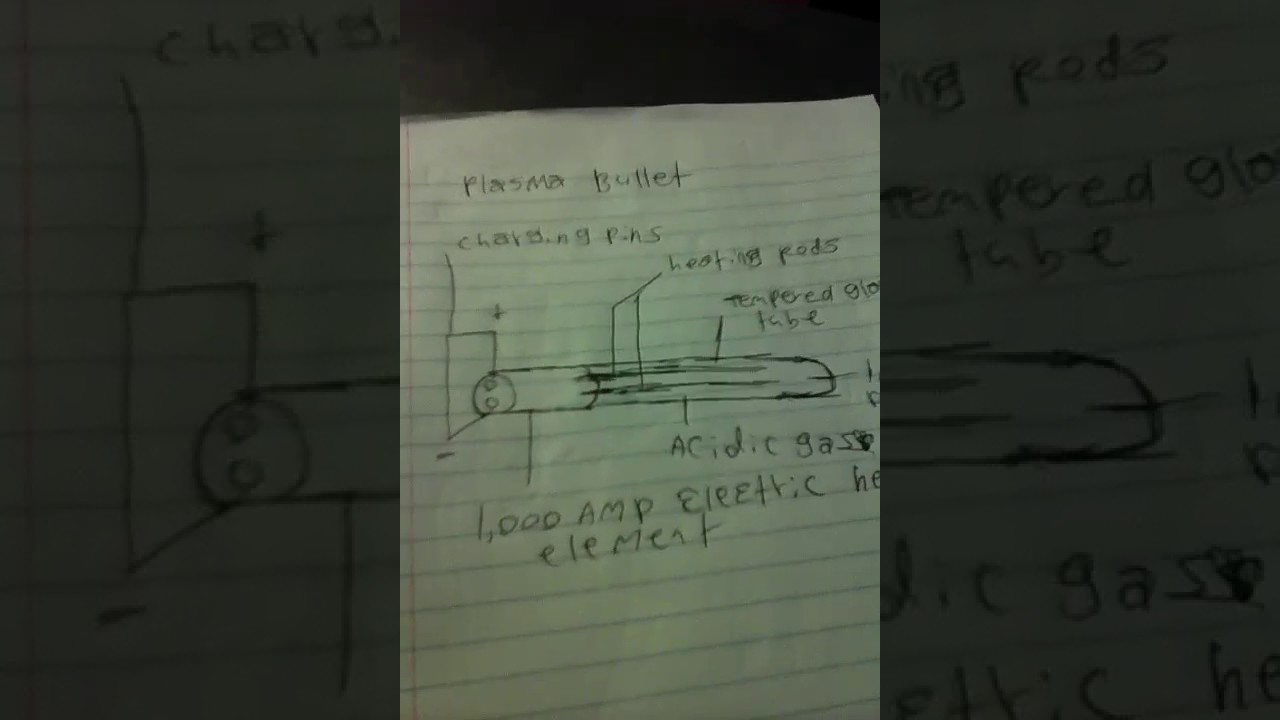 Plasma Bullet
charging pins
heating rods
+
tempered glo
tube
-
Acidic gas
1,000 AMP Electric he
element